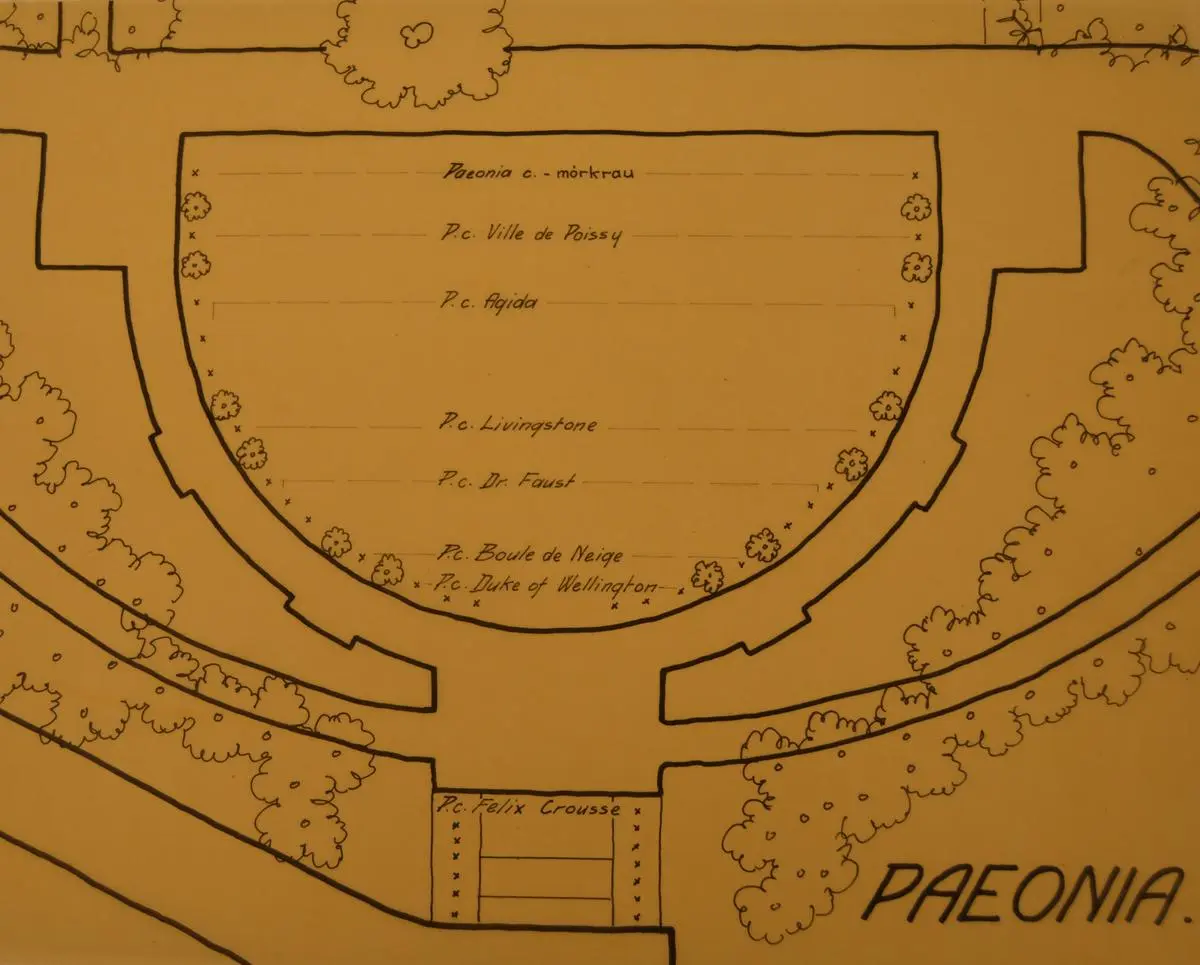 Paeonia c. - mörkrau
P.c. Ville de Poissy
P.c. Agida
P.c. Livingstone
P.c. Dr. Faust
P.c. Boule de Neige
P.c. Duke of Wellington
P.c. Felix Crousse
PAEONIA.